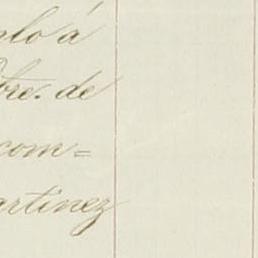 nlo á
bre. de
com=
artinez